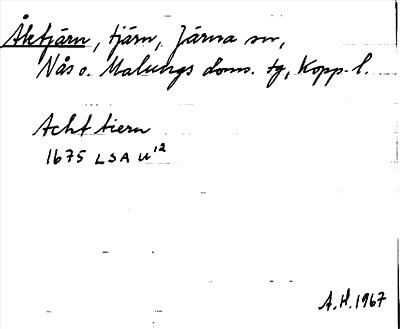 Åktjärn, tjärn, Järna sn,
Nås o. Malungs doms. tg, Kopp. l.
Acht tiern
1675 LSA U¹²
A.H. 1967